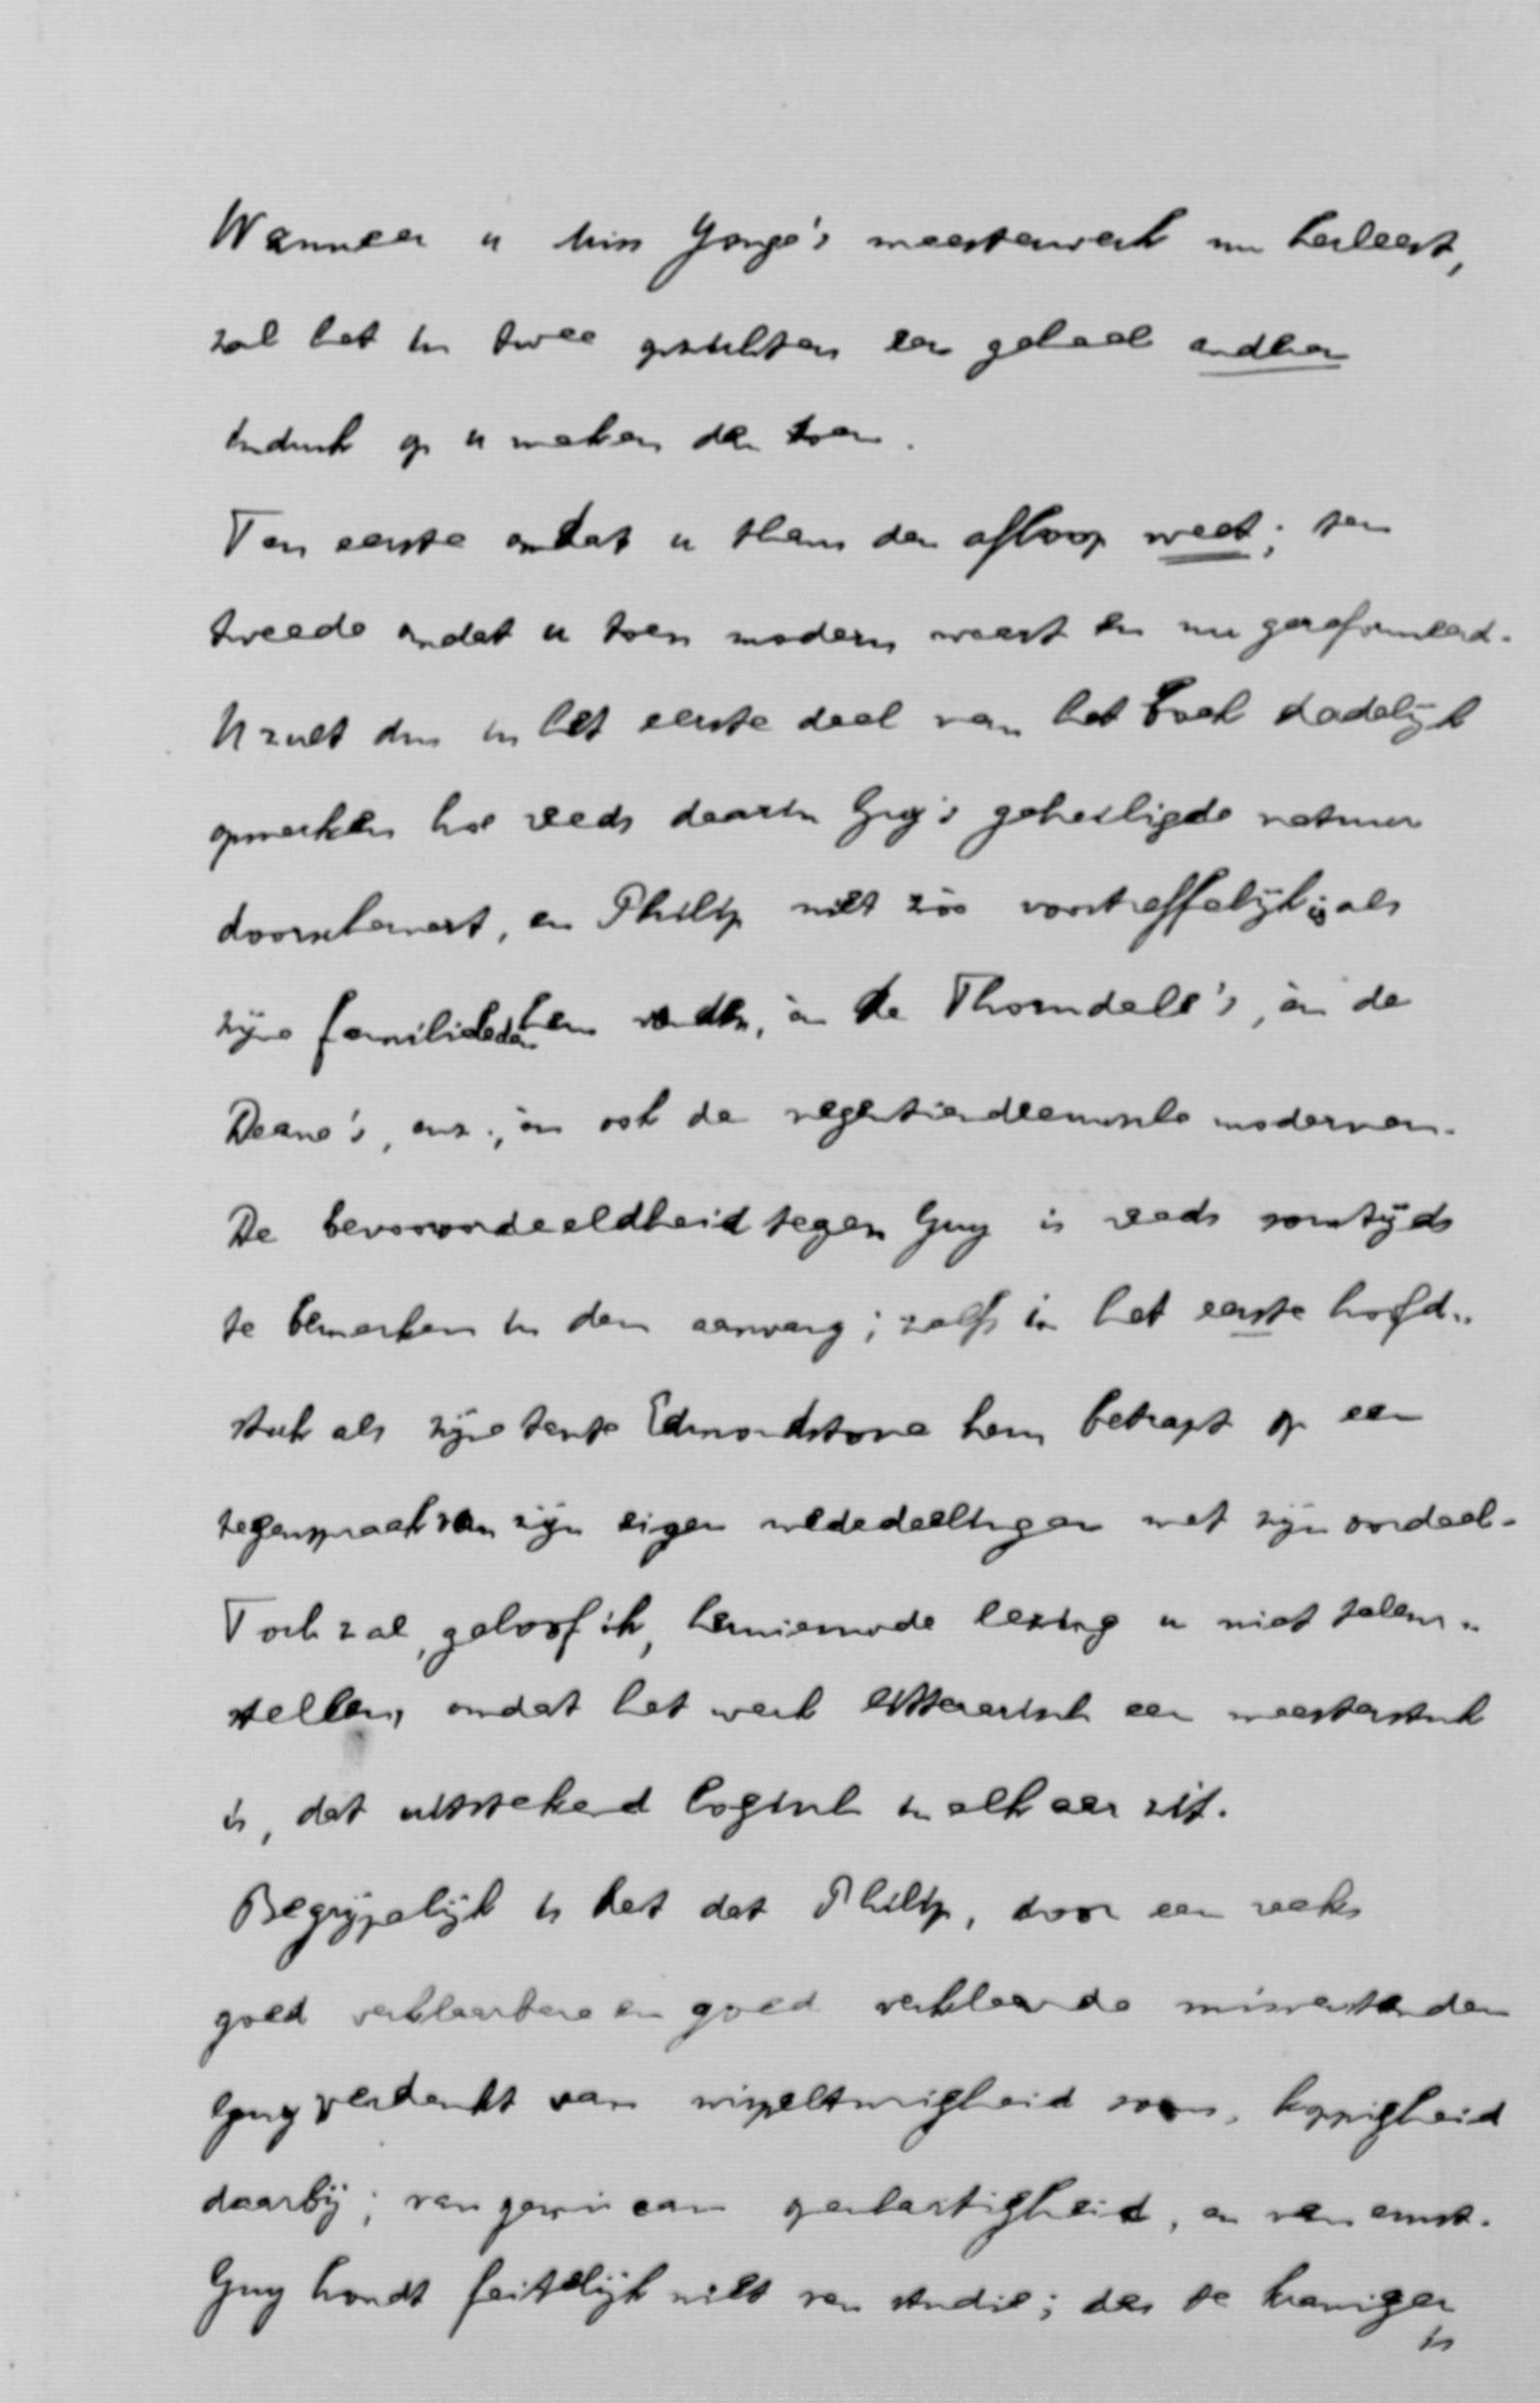 Wanneer u Miss Yonge's meesterwerk nu herleest,
zal het in twee opzichten een geheel anderen
indruk op u maken dan toen.
Ten eerste omdat u thans den afloop weet; ten
tweede omdat u toen modern waart en nu gereformeerd.
U zult dus in het eerste deel van het boek dadelijk
opmerken hoe reeds daarin Guy's geheiligde natuur
doorschemert, en Philip niet zóó voortreffelijk is als
zijne familieleden hem vinden, èn de Thorndale's, èn de
Deane's, enz., èn ook de negentiendeeeuwsche modernen.
De bevooroordeeldheid tegen Guy is reeds somtijds
te bemerken in den aanvang; zelfs in het eerste hoofd-
stuk als zijne tante Edmondstone hem betrapt op een
tegenspraak van zijn eigen mededeelingen met zijn oordeel.
Toch zal, geloof ik, hernieuwde lezing u niet teleur-
stellen, omdat het werk litterarisch een meesterstuk
is, dat uitstekend logisch in elkaar zit.
Begrijpelijk is het dat Philip, door een reeks
goed verklaarbare en goed verklaarde misverstanden
Guy verdenkt van wispelturigheid koppigheid
daarbij; van gemis aan en van ernst.
Guy houdt feitelijk niet van studie; des te kraniger
is